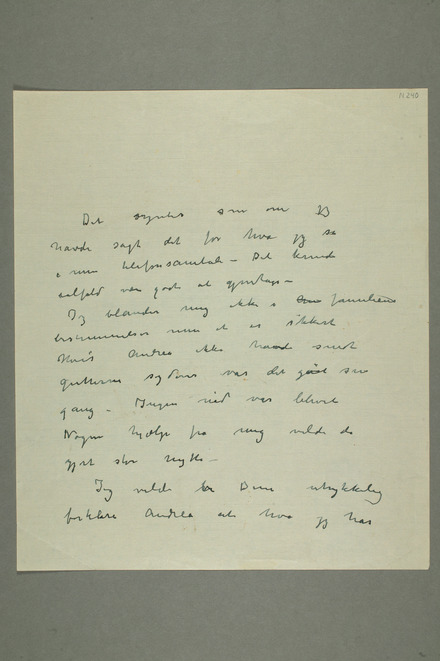 N 240
Det synes som om jeg
havde sagt det før hva jeg sa
i min telefonsamtale – Det kunde
ialfald være godt at gjentages –
Jeg blander mig ikke i familiens
bestemmelser men et er sikkert
Hvis Andrea ikke havde sendt
gutterne sydover var det gåt sin
gang – Ingen nød var blevet
Nogen hjælp fra mig vilde da
gjort stor nytte –
Jeg vilde De uttrykkelig
forklare Andrea alt hva jeg har